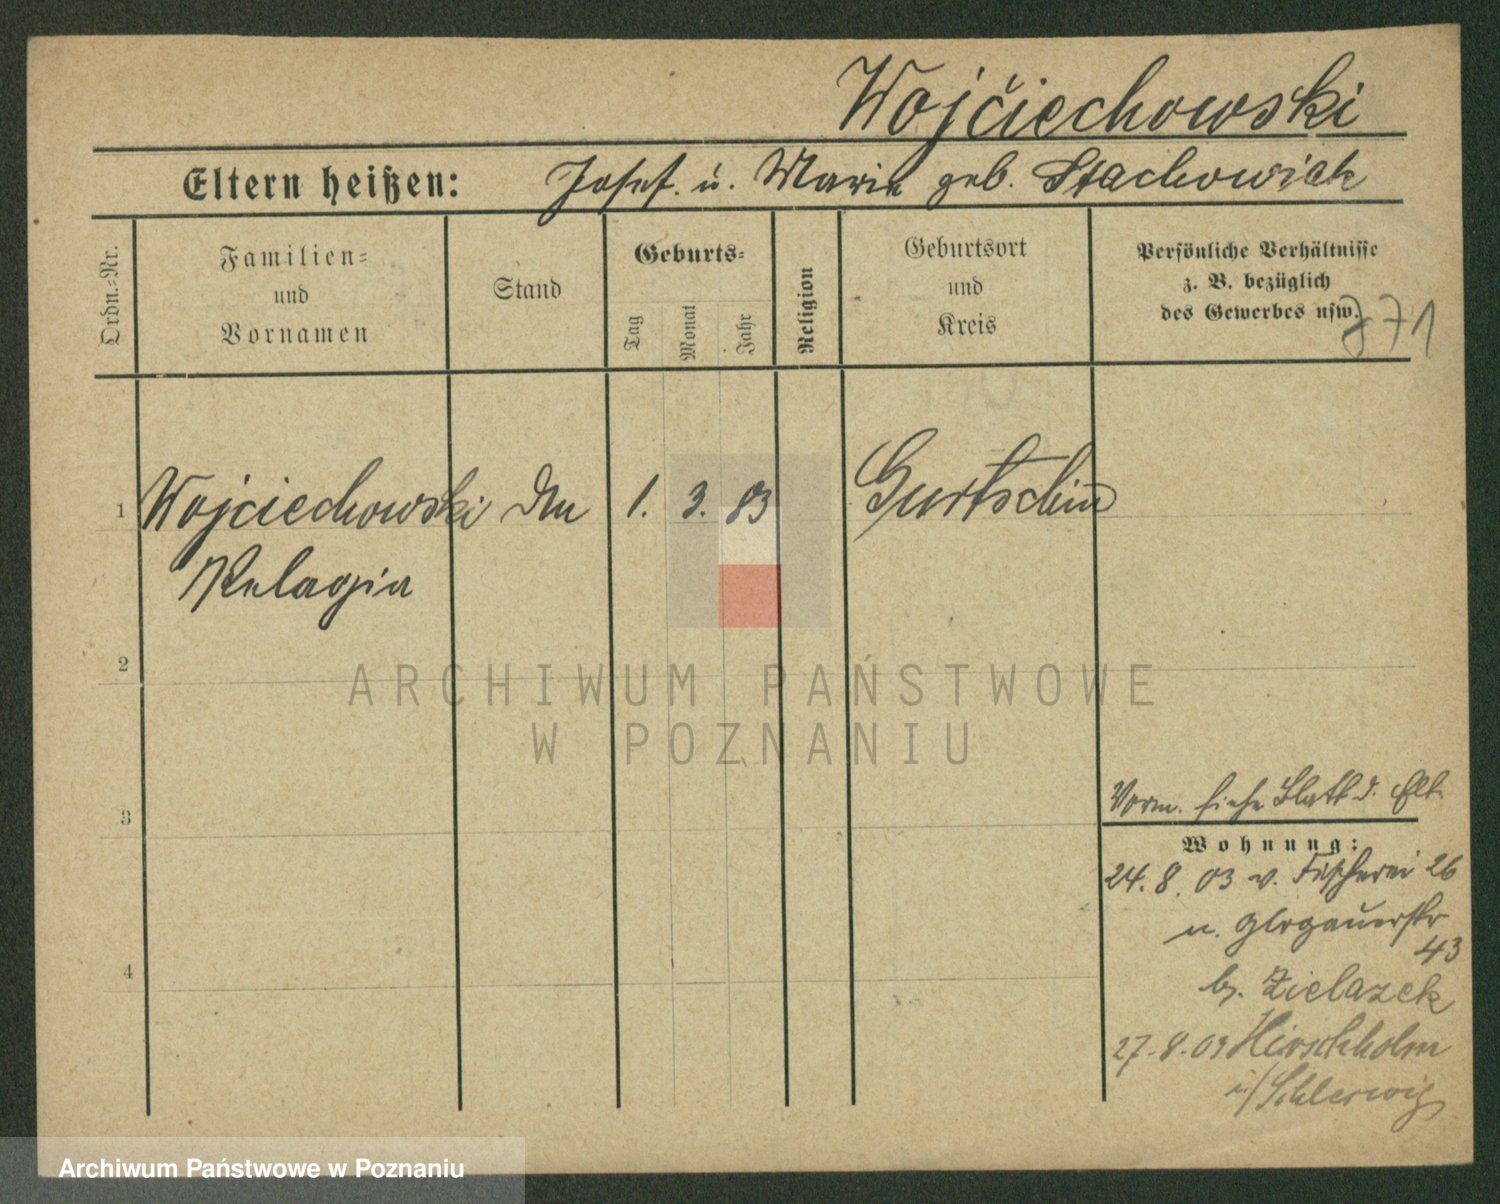 Wojciechowski
Eltern heißen: Josef. u. Marie geb. Stachowiak
Ordn.=Nr.
Familien=
und
Vornamen
Stand
Geburts=
Tag
Monat
Jahr
Religion
Geburtsort
und
Kreis
Persönliche Verhältnisse
z. B. bezüglich
des Gewerbes usw.
871
1 Wojciechowski 1. 3. 83 Gurtschin
Pelagia
2
3
4
ARCHIWUM PAŃSTWOWE
W POZNANIU
Vorm. siehe Blatt d. Elt.
Wohnung:
24. 8. 03 v. Fischerei 26
n. Glogauerstr
43
b. Zielazek
27. 8. 09 Hirschholm
i/Schleswig
Archiwum Państwowe w Poznaniu